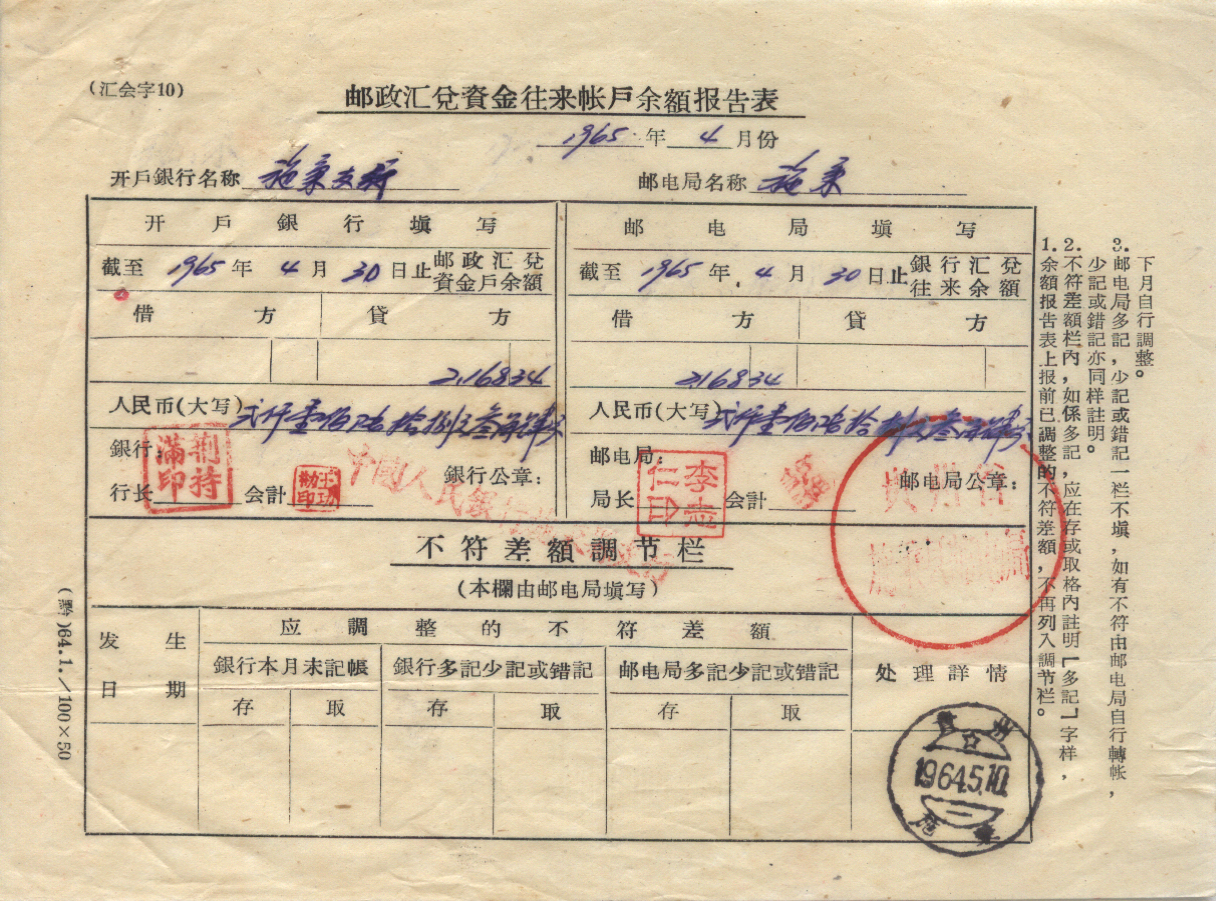 (汇会字10)
邮政汇兌資金往来帐戶余額报告表
1965年 4 月份
开戶銀行名称 施秉支行
邮电局名称 施秉
开戶銀行填写
邮电局填写
截至 1965 年 4 月 30 日止 邮政汇兌資金戶余額
截至 1965 年 4 月 30 日止 銀行汇兌往来余額
借方 貸方
借方 貸方
216834
216834
人民币(大写) 弍仟壹佰陆拾捌元叁角肆分
人民币(大写) 弍仟壹佰陆拾捌元叁角肆分
銀行:
行长 会計
銀行公章:
邮电局:
局长 会計
邮电局公章:
荆持滿印
中國人民銀行施秉
李志仁
貴州省
不符差額調节栏
(本欄由邮电局填写)
发生日期
应調整的不符差額
处理詳情
銀行本月未記帳
銀行多記少記或错記
邮电局多記少記或错記
存 取 存 取 存 取
1.余額报告表上报前已調整的不符差額,不再列入調节栏。
2.不符差額栏內,如係多記,应在存或取格內註明「多記」字样,
少記或錯記亦同样註明。
3.邮电局多記,少記或錯記一栏不塡,如有不符由邮电局自行轉帐,
下月自行調整。
(黔)64.1./100×50
貴州
1964.5.10.
施秉